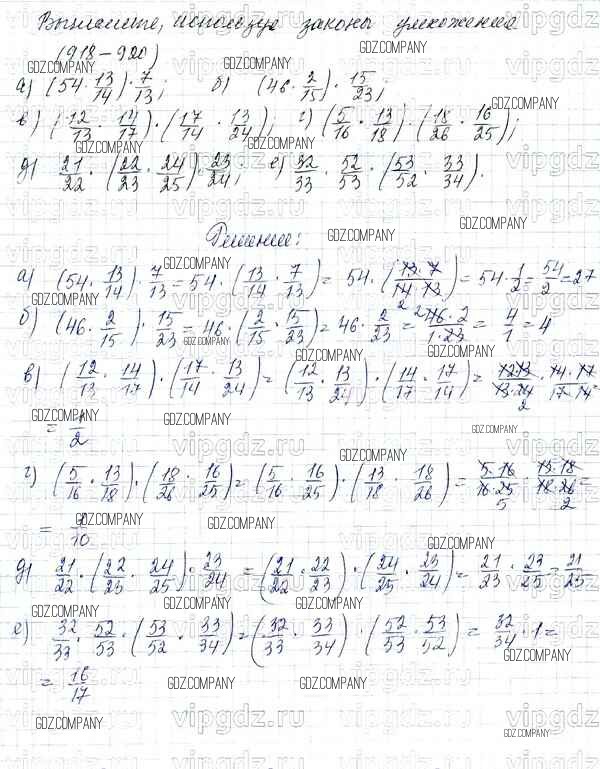 Вычислите, используя законы умножения
(918–920)
а) (54 · 13/14) · 7/13; б) (46 · 2/15) · 15/23;
в) (12/13 · 14/17) · (17/14 · 13/24); г) (5/16 · 13/18) · (18/26 · 16/25);
д) 21/22 · (22/23 · 24/25) · 23/24; е) 32/33 · 52/53 · (53/52 · 33/34).
Решение:
а) (54 · 13/14) · 7/13 = 54 · (13/14 · 7/13) = 54 · (13 · 7/14 · 13) = 54 · 1/2 = 54/2 = 27
б) (46 · 2/15) · 15/23 = 46 · (2/15 · 15/23) = 46 · 2/23 = 46 · 2/1 · 23 = 4/1 = 4
в) (12/13 · 14/17) · (17/14 · 13/24) = (12/13 · 13/24) · (14/17 · 17/14) = 12 · 13/13 · 24 · 14 · 17/17 · 14 =
= 1/2
г) (5/16 · 13/18) · (18/26 · 16/25) = (5/16 · 16/25) · (13/18 · 18/26) = 5 · 16/16 · 25 · 13 · 18/18 · 26 =
= 1/10
д) 21/22 · (22/23 · 24/25) · 23/24 = (21/22 · 22/23) · (24/25 · 23/24) = 21/23 · 23/25 = 21/25
е) 32/33 · 52/53 · (53/52 · 33/34) = (32/33 · 33/34) · (52/53 · 53/52) = 32/34 · 1 =
= 16/17
GDZ.COMPANY
vipgdz.ru